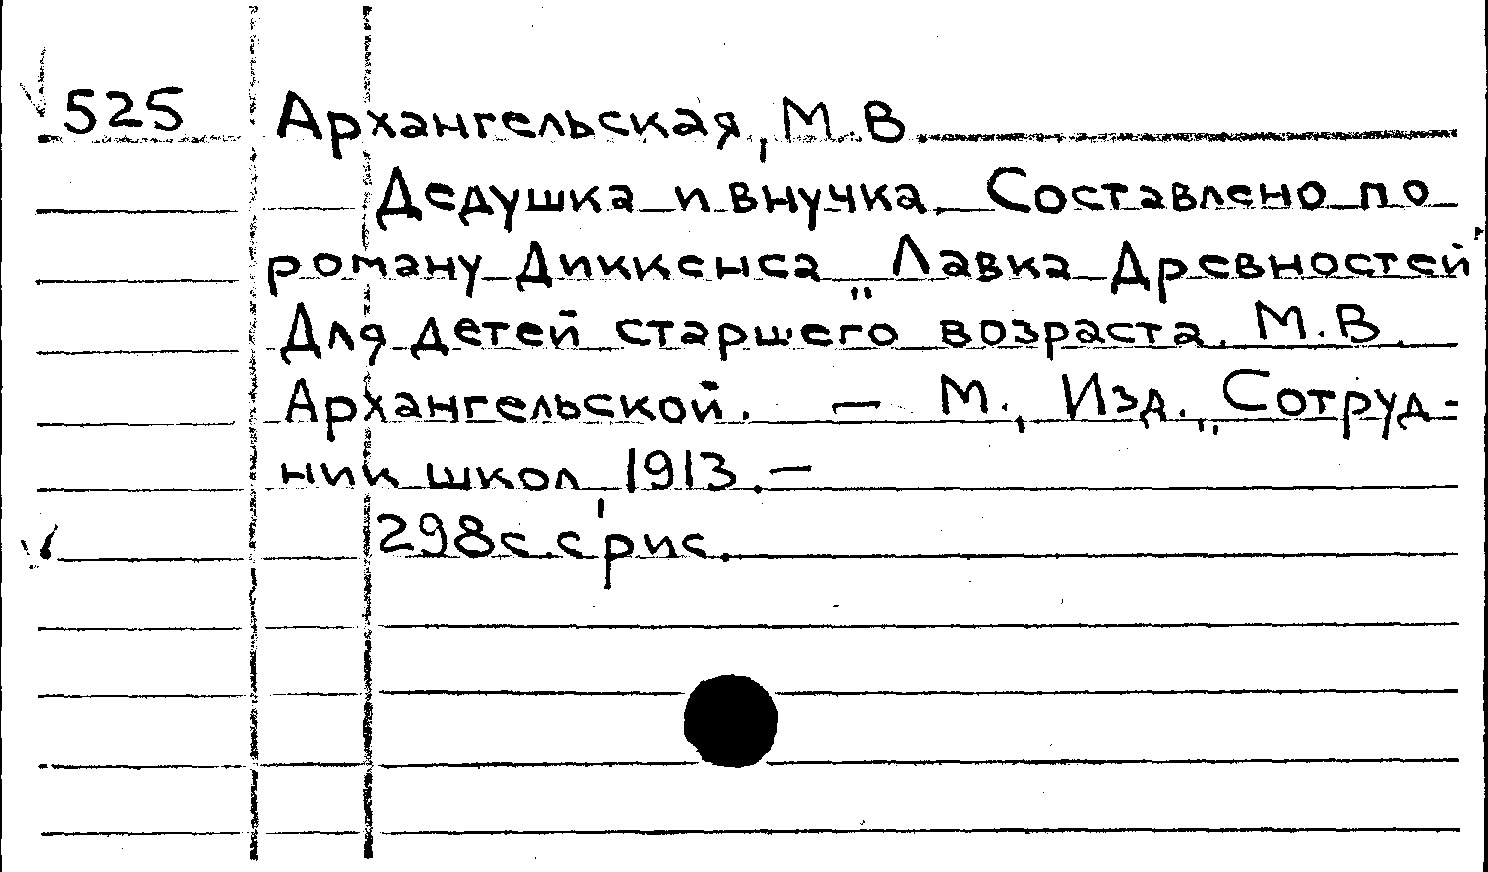 525 Архангельская, М.В
Дедушка и внучка. Составлено по
роману Диккенса „Лавка Древностей"
Для детей старшего возраста. М.В.
Архангельской. — М., Изд. „Сотруд-
ник школ, 1913.—
298с. с рис.